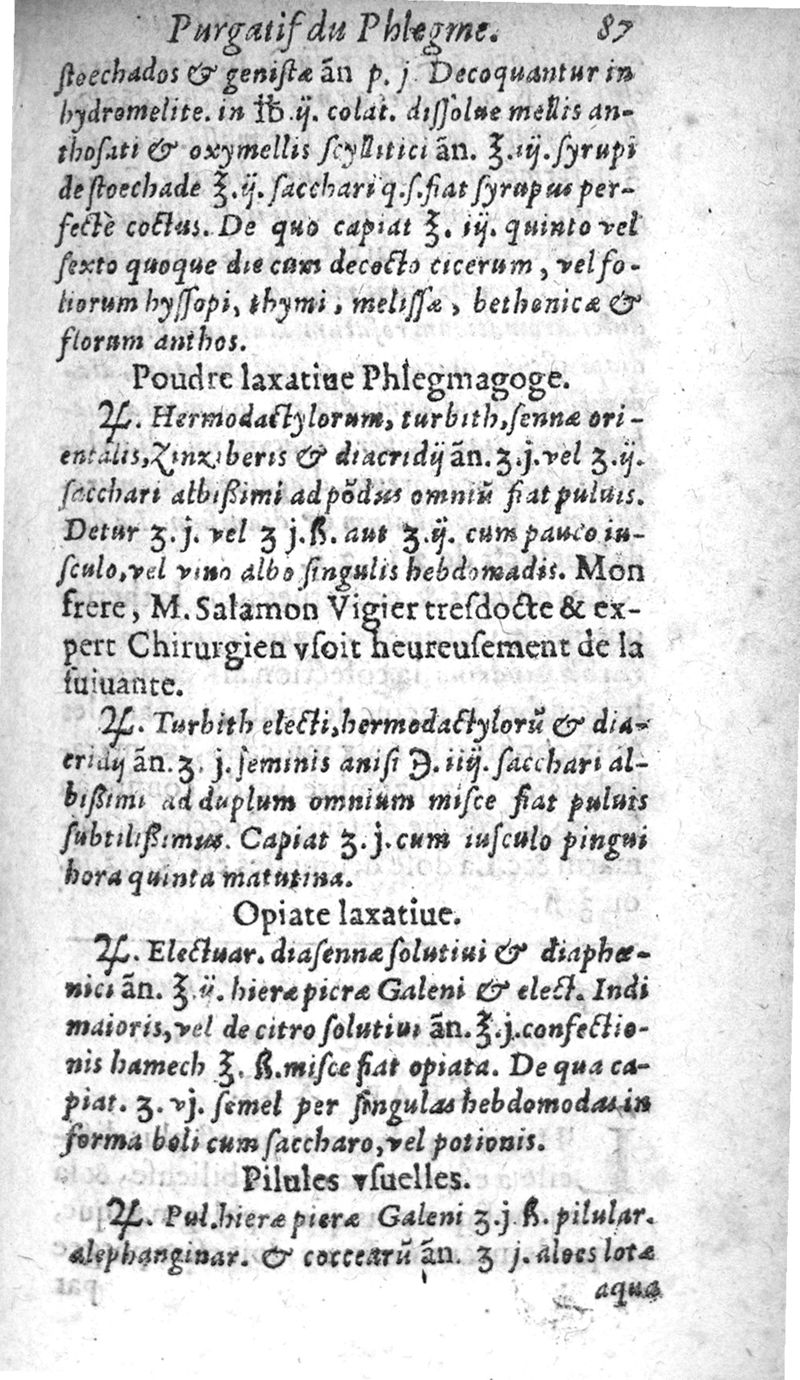 Purgatif du Phlegme. 87
ſtoechados & geniſtæ ān p. j. Decoquantur in
hydromelite. in ℔ .ij. colat. diſſolue mellis an-
thoſati & oxymellis ſcyllitici ān. ℥.iij. ſyrupi
de ſtoechade ℥.ij. ſacchari q.ſ. fiat ſyrupus per-
fectè coctus. De quo capiat ℥. iij. quinto vel
ſexto quoque die cum decocto cicerum, vel fo-
liorum hyſſopi, thymi, meliſſæ, bethonicæ &
florum anthos.
Poudre laxatiue Phlegmagoge.
♃. Hermodactylorum, turbith, ſennæ ori-
entalis, Zinziberis & diacridij ān. ʒ.j. vel ʒ.ij.
ſacchari albißimi ad põdus omniũ fiat puluis.
Detur ʒ.j. vel ʒ j.ß. aut ʒ.ij. cum pauco iu-
ſculo, vel vino albo ſingulis hebdomadis. Mon
frere, M. Salamon Vigier treſdocte & ex-
pert Chirurgien vſoit heureuſement de la
ſuiuante.
♃. Turbith electi, hermodactylorũ & dia-
cridij ān. ʒ. j. ſeminis aniſi ℈. iiij. ſacchari al-
bißimi ad duplum omnium miſce fiat puluis
ſubtilißimus. Capiat ʒ.j. cum iuſculo pingui
hora quinta matutina.
Opiate laxatiue.
♃. Electuar. diaſennæ ſolutiui & diaphœ-
nici ān. ℥.ij. hieræ picræ Galeni & elect. Indi
maioris, vel de citro ſolutiui ān. ℥.j. confectio-
nis hamech ℥. ß. miſce fiat opiata. De qua ca-
piat. ʒ. vj. ſemel per ſingulas hebdomodas in
forma boli cum ſaccharo, vel potionis.
Pilules vſuelles.
♃. Pul. hieræ picræ Galeni ʒ.j ß. pilular.
alephanginar. & coccearũ ān. ʒ j. aloes lotæ
aqua